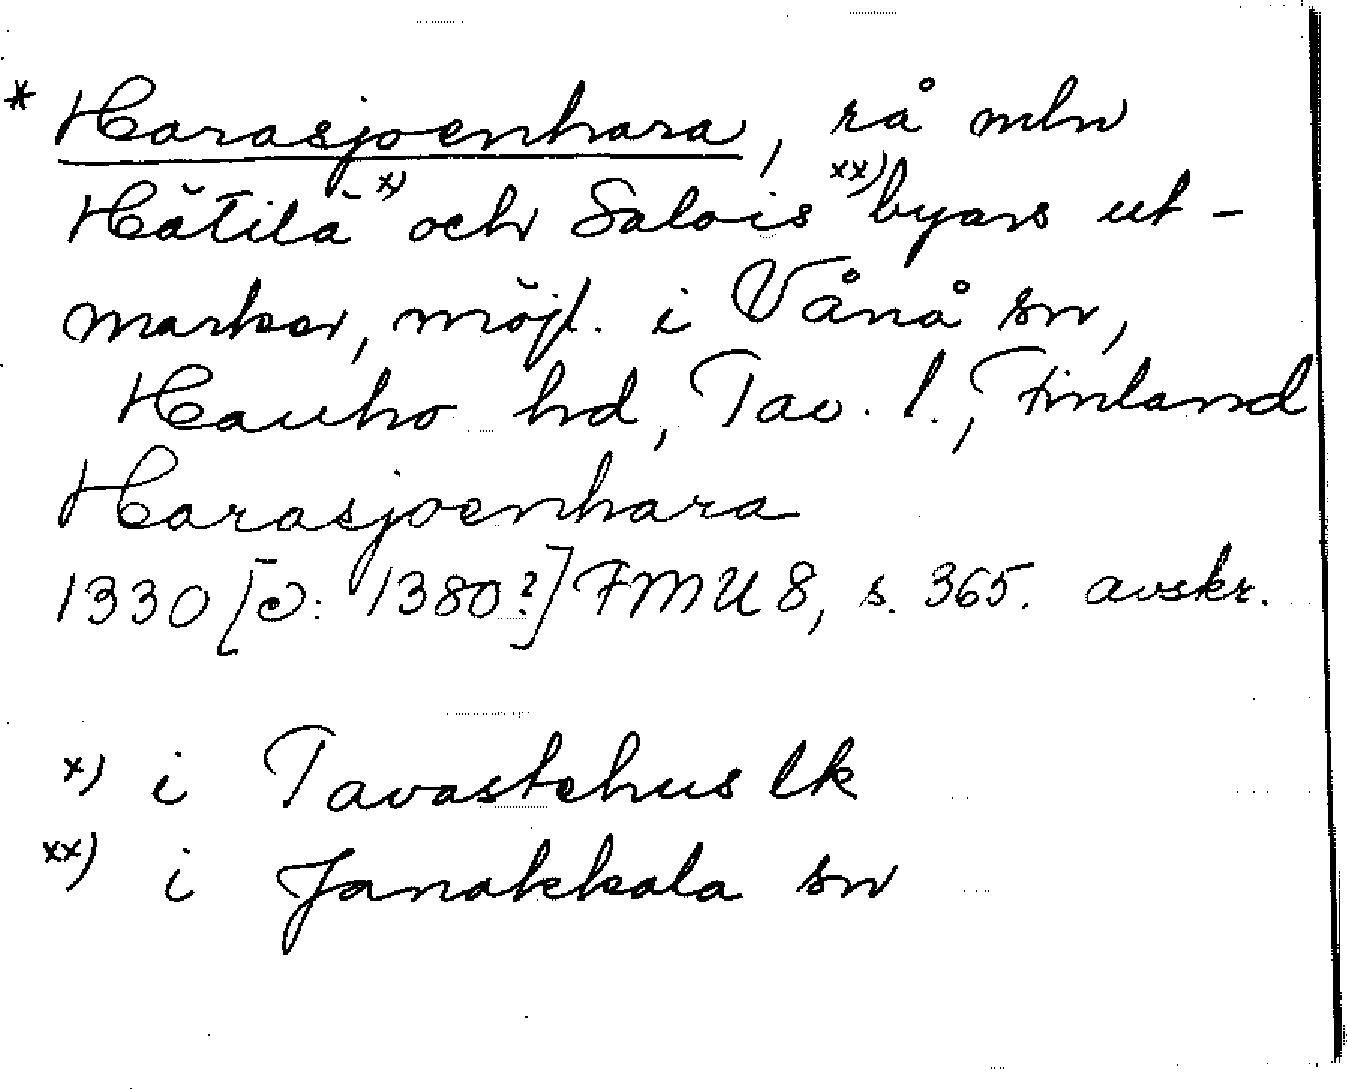 * Harasjoenhara, rå mln
Hätilä x) och Salois xx) byars ut-
marker, möjl. i Vånå sn,
Hauho hd, Tav. l., Finland
Harasjoenhara
1330 [ɔ: 1380?] FMU 8, s. 365. avskr.
x) i Tavastehus lk
xx) i Janakkala sn